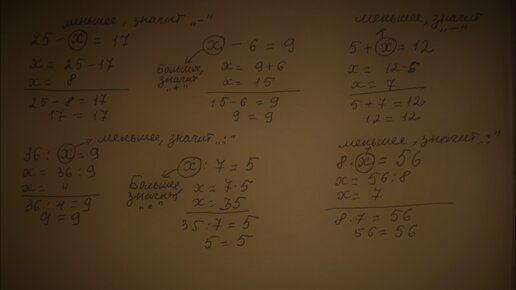 меньшее, значит „-"
25 - x = 17
x = 25 - 17
x = 8
25 - 8 = 17
17 = 17
x - 6 = 9
Большее,
значит
„+"
x = 9 + 6
x = 15
15 - 6 = 9
9 = 9
меньшее, значит
„-"
5 + x = 12
x = 12 - 5
x = 7
5 + 7 = 12
12 = 12
меньшее, значит „:"
36 : x = 9
x = 36 : 9
x = 4
36 : 4 = 9
9 = 9
x : 7 = 5
Большее,
значит
„•"
x = 7 · 5
x = 35
35 : 7 = 5
5 = 5
меньшее, значит „:"
8 · x = 56
x = 56 : 8
x = 7
8 · 7 = 56
56 = 56